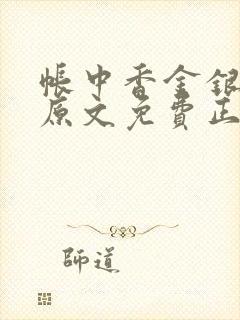 帳中香金銀
原文免費正
師道